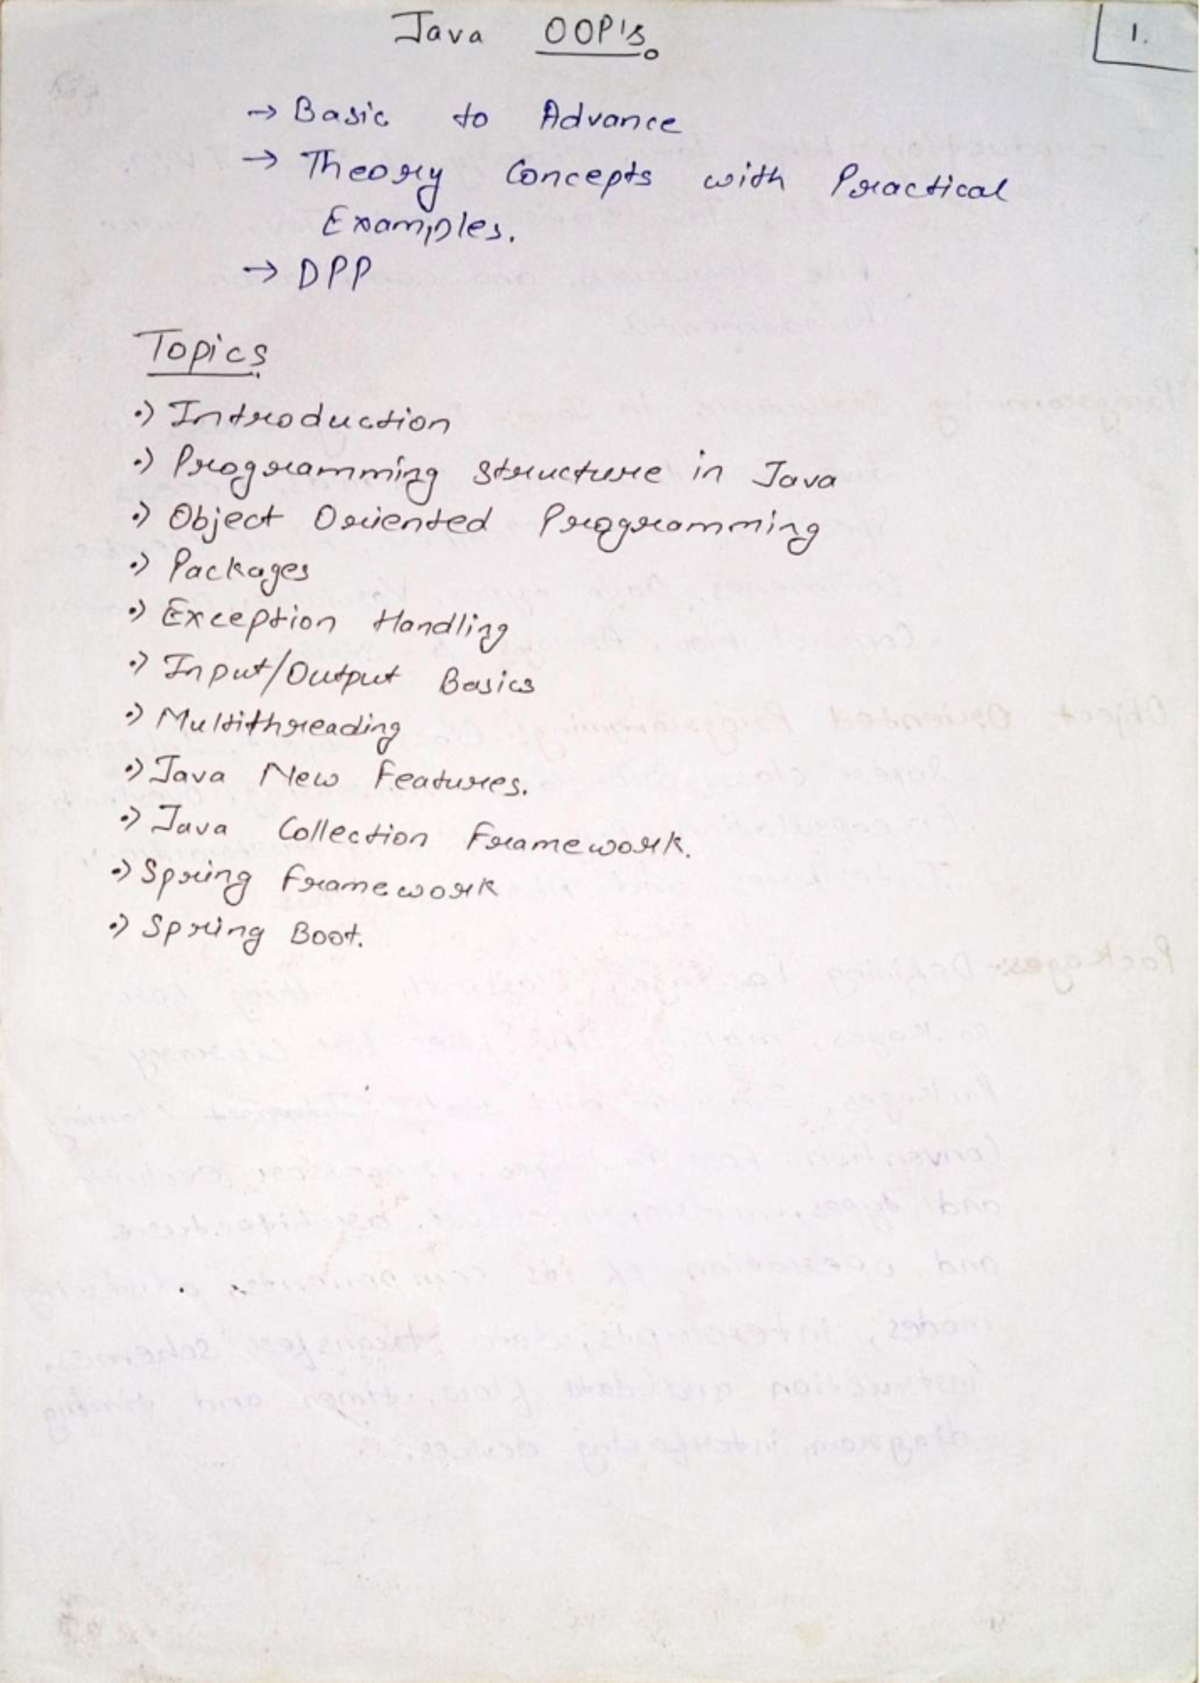 Java OOP's.
1.
→ Basic to Advance
→ Theory Concepts with Practical
Examples.
→ DPP
Topics
•) Introduction
•) Programming structure in Java
•) Object Oriented Programming
•) Packages
•) Exception Handling
•) Input/Output Basics
•) Multithreading
•) Java New Features.
•) Java Collection Framework.
•) Spring Framework
•) Spring Boot.